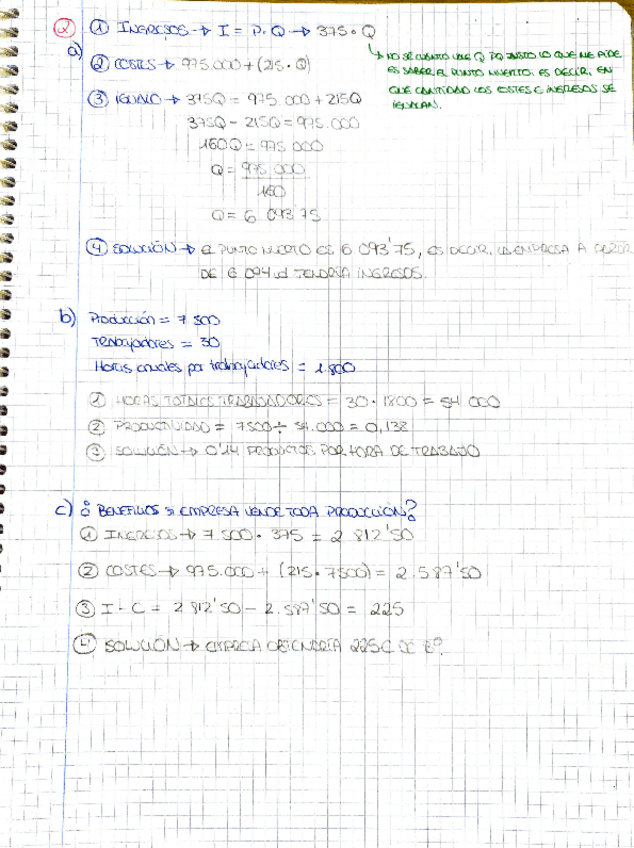 ② ① INGRESOS → I = P. Q → 375 • Q
a)
↳ NO SÉ CUANTO VALE Q PQ JUSTO LO QUE ME PIDE
ES SABER EL PUNTO MUERTO, ES DECIR, EN
QUE CANTIDAD LOS COSTES E INGRESOS SE
IGUALAN.
② COSTES → 975.000 + (215 • Q)
③ IGUALO → 375Q = 975.000 + 215Q
375Q - 215Q = 975.000
160Q = 975 000
Q = 975 000
160
Q = 6 093'75
④ SOLUCIÓN → EL PUNTO MUERTO ES 6 093'75, ES DECIR, LA EMPRESA A PARTIR
DE 6 094 ud TENDRÍA INGRESOS.
b) Producción = 7 500
Trabajadores = 30
Horas anuales por trabajadores = 1.800
① HORAS TOTALES TRABAJADORES = 30 • 1800 = 54 000
② PRODUCTIVIDAD = 7500 ÷ 54.000 = 0,138
③ SOLUCIÓN → 0'14 PRODUCTOS POR HORA DE TRABAJO
c) ¿ BENEFICIOS SI EMPRESA VENDE TODA PRODUCCIÓN?
① INGRESOS → 7 500 • 375 = 2 812'50
② COSTES → 975.000 + (215 • 7500) = 2.587'50
③ I - C = 2 812'50 - 2.587'50 = 225
④ SOLUCIÓN → EMPRESA OBTENDRÍA 225€ DE Bº.